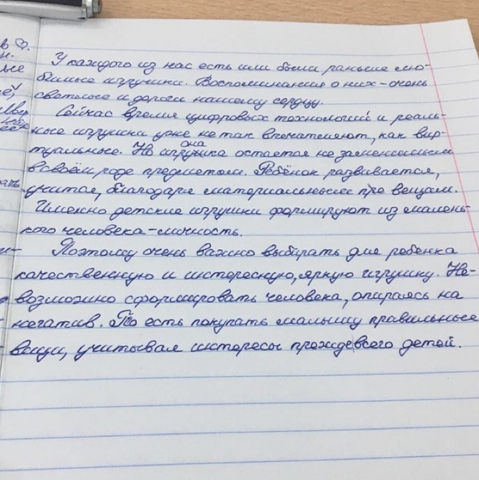 У каждого из нас есть или были раньше лю-
бимые игрушки. Воспоминания о них - очень
светлые и дороги нашему сердцу.
Сейчас время цифровых технологий и реаль-
ные игрушки уже не так впечатляют, как вир-
туальные. Но она игрушка остается не заменимым
в своём роде предметом. Ребёнок развивается,
учится, благодаря материальным про вещам.
Именно детские игрушки формируют из малень-
кого человека - личность.
Поэтому очень важно выбирать для ребенка
качественную и интересную, яркую игрушку. Не-
возможно сформировать человека, опираясь на
негатив. То есть покупать малышу правильные
вещи, учитывая интересы прежде всего детей.